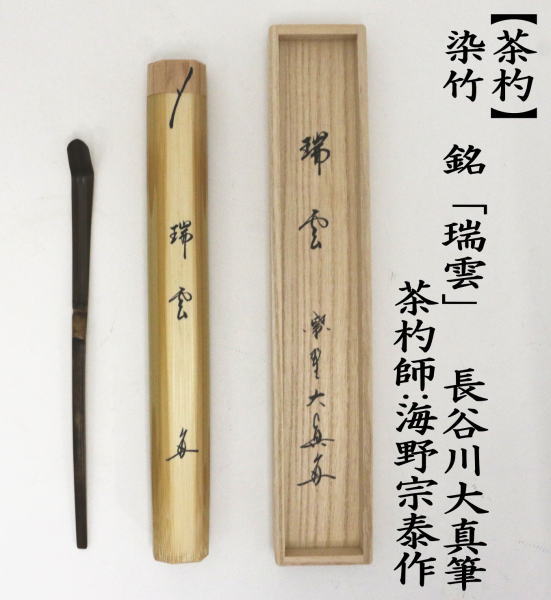 【茶杓】
染竹　銘「瑞雲」　長谷川大真筆
茶杓師:海野宗泰作
瑞雲
瑞雲
大真